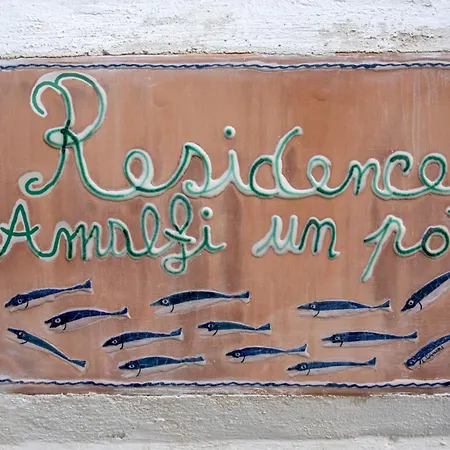 Residence
Amalfi un po